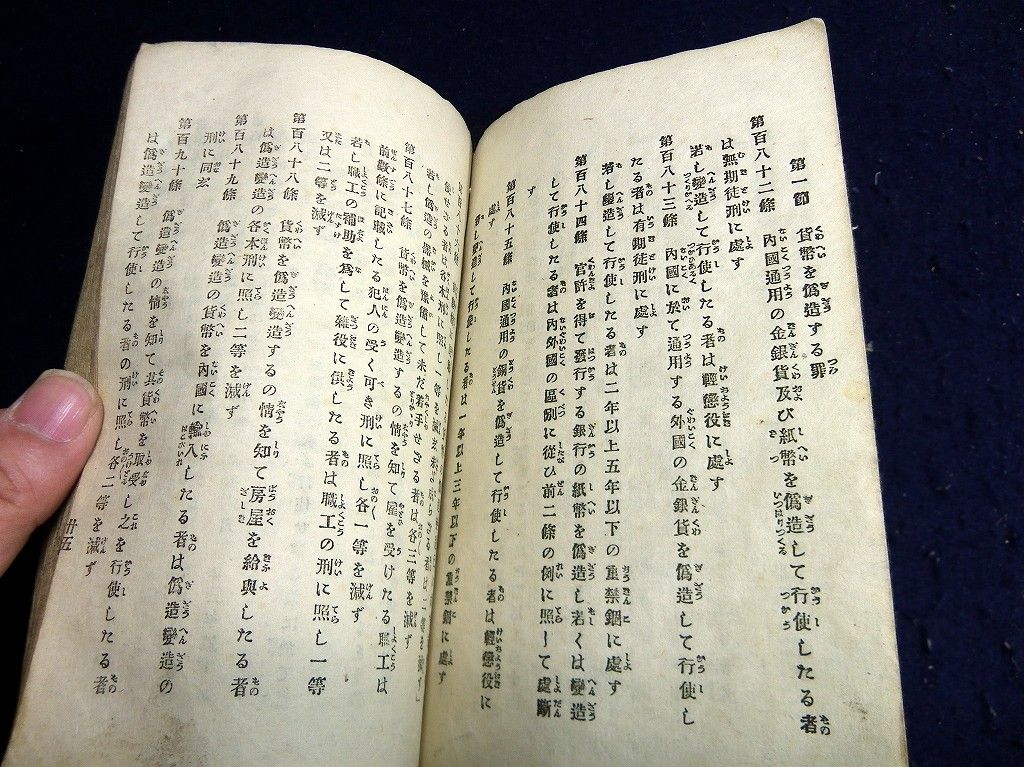 第一節 貨幣を僞造する罪
第百八十二條 內國通用の金銀貨及び紙幣を僞造して行使したる者
は無期徒刑に處す
若し變造して行使したる者は輕懲役に處す
第百八十三條 內國に於て通用する外國の金銀貨を僞造して行使し
たる者は有期徒刑に處す
若し變造して行使したる者は二年以上五年以下の重禁錮に處す
第百八十四條 官許を得て發行する銀行の紙幣を僞造し若くは變造
して行使したる者は內外國の區別に從ひ前二條の例に照して處斷
す
第百八十五條 內國通用の銅貨を僞造して行使したる者は輕懲役に
處す
若し變造して行使したる者は一年以上三年以下の重禁錮に處す
第百八十六條
使せざる者は各本刑に照し一等を減す
若し僞造の器械を豫備して未だ着手せざる者は各三等を減す
第百八十七條 貨幣を僞造變造するの情を知て雇を受けたる職工は
前數條に記載したる犯人の受く可き刑に照し各一等を減す
若し職工の補助を爲して雜役に供したる者は職工の刑に照し一等
又は二等を減す
第百八十八條 貨幣を僞造變造するの情を知て房屋を給與したる者
は僞造變造の各本刑に照し二等を減す
第百八十九條 僞造變造の貨幣を內國に輸入したる者は僞造變造の
刑に同宏
第百九十條 僞造變造の情を知て其貨幣を取受し之を行使したる者
は僞造變造して行使したる者の刑に照し各二等を減す
卅五